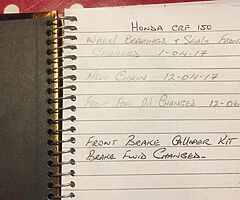 HONDA CRF 150
WHEEL BEARINGS + SEALS FRONT
CHANGED 1-04-17
NEW CHAIN 12-04-17
FRONT FORK OIL CHANGED 12-06
FRONT BRAKE CALLIPER KIT
BRAKE FLUID CHANGED-